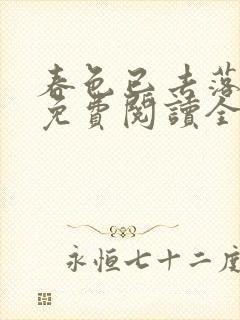 春色已去落
免費閱讀全
永恒七十二度